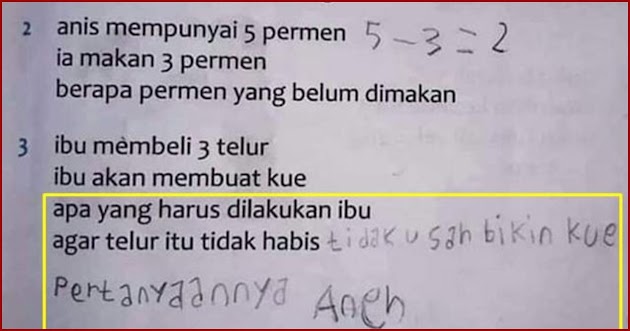 2 anis mempunyai 5 permen 5 - 3 = 2
ia makan 3 permen
berapa permen yang belum dimakan
3 ibu membeli 3 telur
ibu akan membuat kue
apa yang harus dilakukan ibu
agar telur itu tidak habis tidak usah bikin kue
Pertanyaannya Aneh